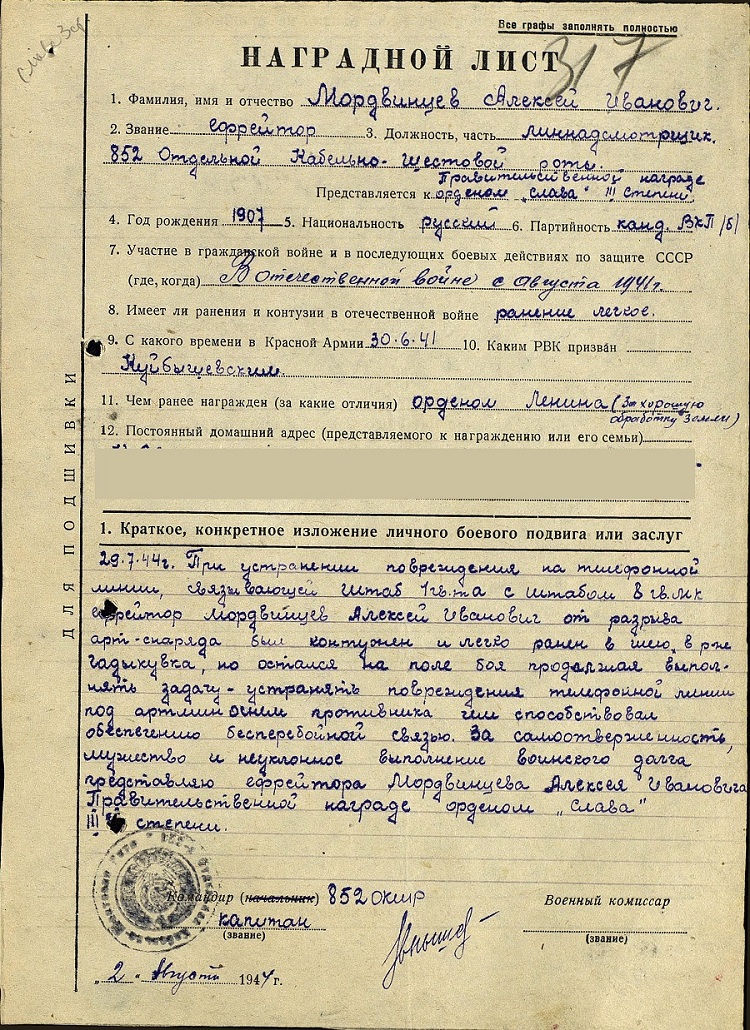 Слава 3 ст
Все графы заполнять полностью
317
НАГРАДНОЙ ЛИСТ
1. Фамилия, имя и отчество Мордвинцев Алексей Иванович.
2. Звание ефрейтор 3. Должность, часть линнадсмотрщик.
852 Отдельной Кабельно-шестовой роты.
Правительственной награде
Представляется к орденом „Слава" III степени
4. Год рождения 1907 5. Национальность русский 6. Партийность канд. ВКП/б/
7. Участие в гражданской войне и в последующих боевых действиях по защите СССР
(где, когда) В отечественной войне с августа 1941г.
8. Имеет ли ранения и контузии в отечественной войне ранение легкое.
9. С какого времени в Красной Армии 30.6.41 10. Каким РВК призван
Куйбышевским.
11. Чем ранее награжден (за какие отличия) орденом Ленина (За хорошую
обработку земли)
12. Постоянный домашний адрес (представляемого к награждению или его семьи)
ДЛЯ ПОДШИВКИ
1. Краткое, конкретное изложение личного боевого подвига или заслуг
29.7.44г. При устранении повреждения на телефонной
линии, связывающей штаб 1 гв.та с штабом 8 гв.мк
ефрейтор Мордвинцев Алексей Иванович от разрыва
арт-снаряда был контужен и легко ранен в шею, в р-не
Гадыкувка, но остался на поле боя продолжая выпол-
нять задачу - устранять повреждения телефонной линии
под артмин огнем противника чем способствовал
обеспечению бесперебойной связью. За самоотверженность,
мужество и неуклонное выполнение воинского долга
представляю ефрейтора Мордвинцева Алексея Ивановича
Правительственной награде орденом „Слава"
III й степени.
Командир (начальник) 852 ОКШР
капитан
(звание)
Военный комиссар
(звание)
„2" Августа 1944 г.